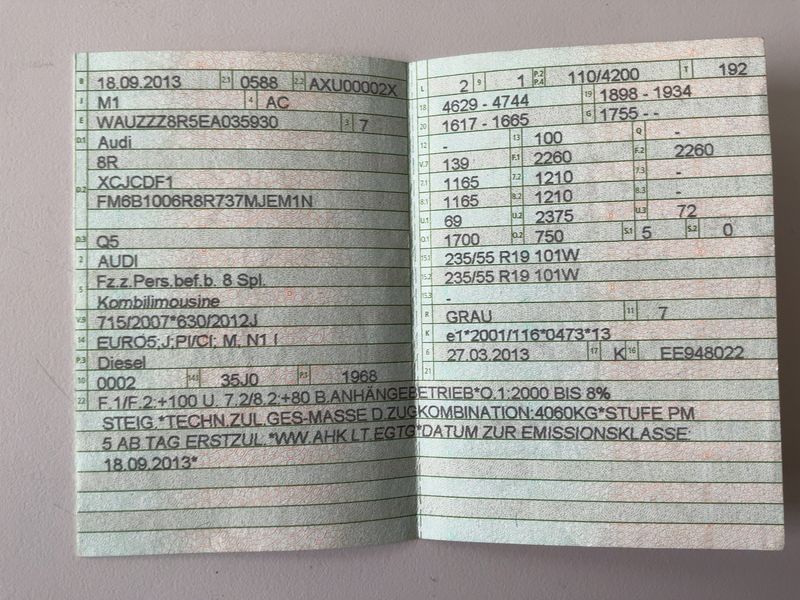 B 18.09.2013 2.1 0588 2.2 AXU00002X
J M1 4 AC
E WAUZZZ8R5EA035930 3 7
D.1 Audi
8R
D.2 XCJCDF1
FM6B1006R8R737MJEM1N
D.3 Q5
2 AUDI
5 Fz.z.Pers.bef.b. 8 Spl.
Kombilimousine
V.9 715/2007*630/2012J
14 EURO5;J;PI/CI; M, N1 I
P.3 Diesel
10 0002 14.1 35J0 P.1 1968
L 2 9 1 P.2 P.4 110/4200 T 192
18 4629 - 4744 19 1898 - 1934
20 1617 - 1665 G 1755 - -
12 - 13 100 Q -
V.7 139 F.1 2260 F.2 2260
7.1 1165 7.2 1210 7.3 -
8.1 1165 8.2 1210 8.3 -
U.1 69 U.2 2375 U.3 72
O.1 1700 O.2 750 S.1 5 S.2 0
15.1 235/55 R19 101W
15.2 235/55 R19 101W
15.3 -
R GRAU 11 7
K e1*2001/116*0473*13
6 27.03.2013 17 K 16 EE948022
21
22 F.1/F.2:+100 U. 7.2/8.2:+80 B.ANHÄNGEBETRIEB*O.1:2000 BIS 8%
STEIG.*TECHN.ZUL.GES-MASSE D.ZUGKOMBINATION:4060KG*STUFE PM
5 AB TAG ERSTZUL.*WW.AHK LT.EGTG*DATUM ZUR EMISSIONSKLASSE:
18.09.2013*